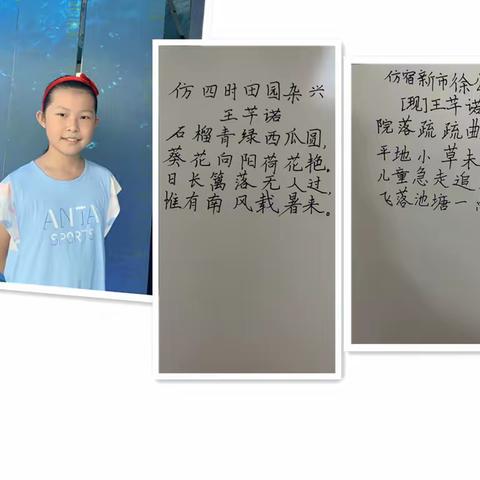 ANTA
SPORTS
仿四时田园杂兴
王芊诺
石榴青绿西瓜圆，
葵花向阳荷花艳。
日长篱落无人过，
惟有南风载暑来。
仿宿新市徐公
[现]王芊诺
院落疏疏曲
平地小草未
儿童急走追
飞落池塘一